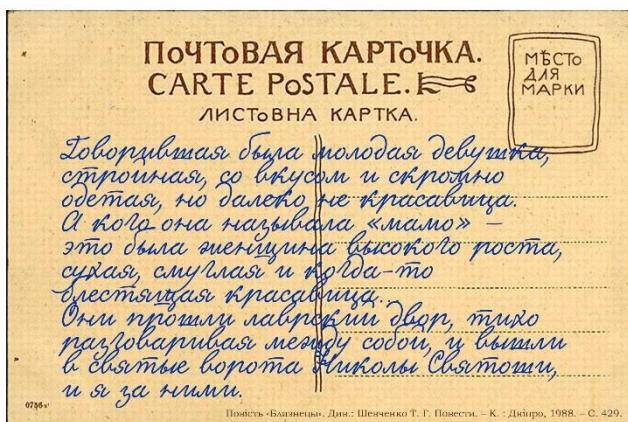 ПОЧТОВАЯ КАРТОЧКА.
CARTE POSTALE.
ЛИСТОВНА КАРТКА.
МѢСТО
ДЛЯ
МАРКИ
Говорившая была молодая девушка,
стройная, со вкусом и скромно
одетая, но далеко не красавица.
А кого она называла «мамо» –
это была женщина высокого роста,
сухая, смуглая и когда-то
блестящая красавица...
Они прошли лаврский двор, тихо
разговаривая между собой, и вышли
в святые ворота Николы Святоши,
и я за ними.
Повість «Близнецы». Див.: Шевченко Т. Г. Повести. – К. : Дніпро, 1988. – С. 429.